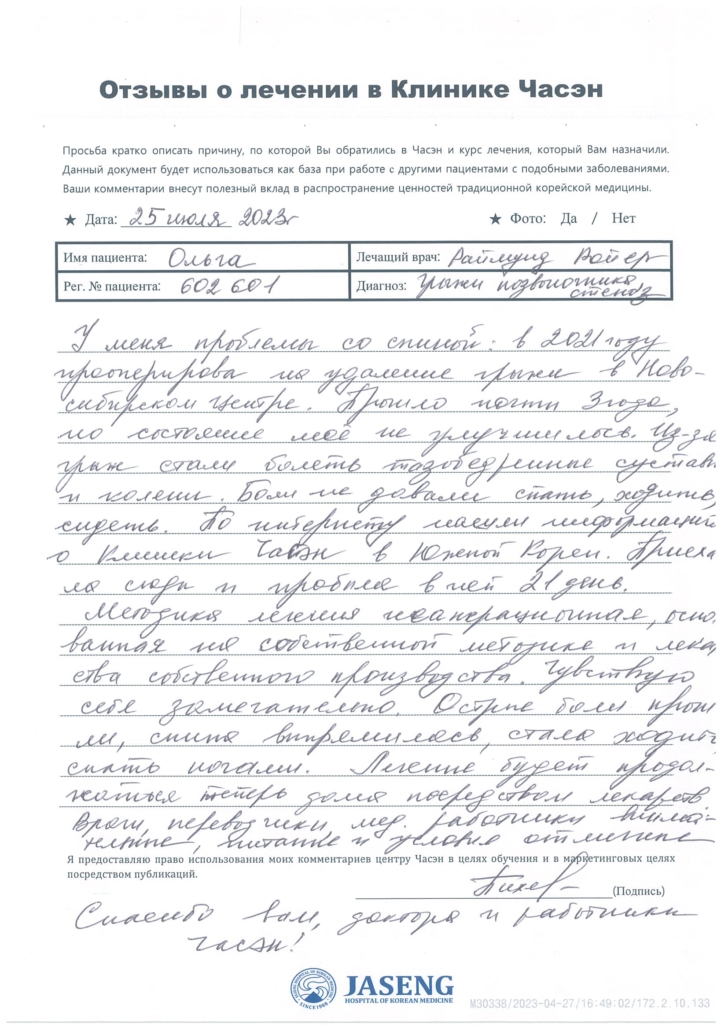 Отзывы о лечении в Клинике Часэн
Просьба кратко описать причину, по которой Вы обратились в Часэн и курс лечения, который Вам назначили.
Данный документ будет использоваться как база при работе с другими пациентами с подобными заболеваниями.
Ваши комментарии внесут полезный вклад в распространение ценностей традиционной корейской медицины.
★ Дата: 25 июля 2023г ★ Фото: Да / Нет
Имя пациента: Ольга Лечащий врач: Раймунд Ройер
Рег. № пациента: 602 601 Диагноз: Грыжи позвоночника
стеноз
У меня проблемы со спиной: в 2021 году
прооперирова на удаление грыжи в Ново-
сибирском Центре. Прошло почти 3 года,
но состояние моё не улучшилось. Из-за
грыж стали болеть тазобедренные сустав
и колени. Боли не давали спать, ходить,
сидеть. По интернету нашли информаци
о Клиники Часэн в Южной Кореи. Приеха
ла сюда и пробыла в ней 21 день.
Методика лечения неоперационная, осно
ванная на собственной методике и лека
ства собственного производства. Чувствую
себя замечательно. Острые боли прош
ли, спина выпрямилась, стала ходить
спать ногами. Лечение будет продол-
жаться теперь дома посредством лекарств
Врачи, переводчики, мед. работники внима-
тельные, питание и условия отличные
Я предоставляю право использования моих комментариев центру Часэн в целях обучения и в маркетинговых целях
посредством публикаций.
(Подпись)
Спасибо вам, доктора и работники
Часэн!
JASENG
HOSPITAL OF KOREAN MEDICINE
JASENG HOSPITAL OF KOREAN MEDICINE
SINCE 1988
M30338/2023-04-27/16:49:02/172.2.10.133